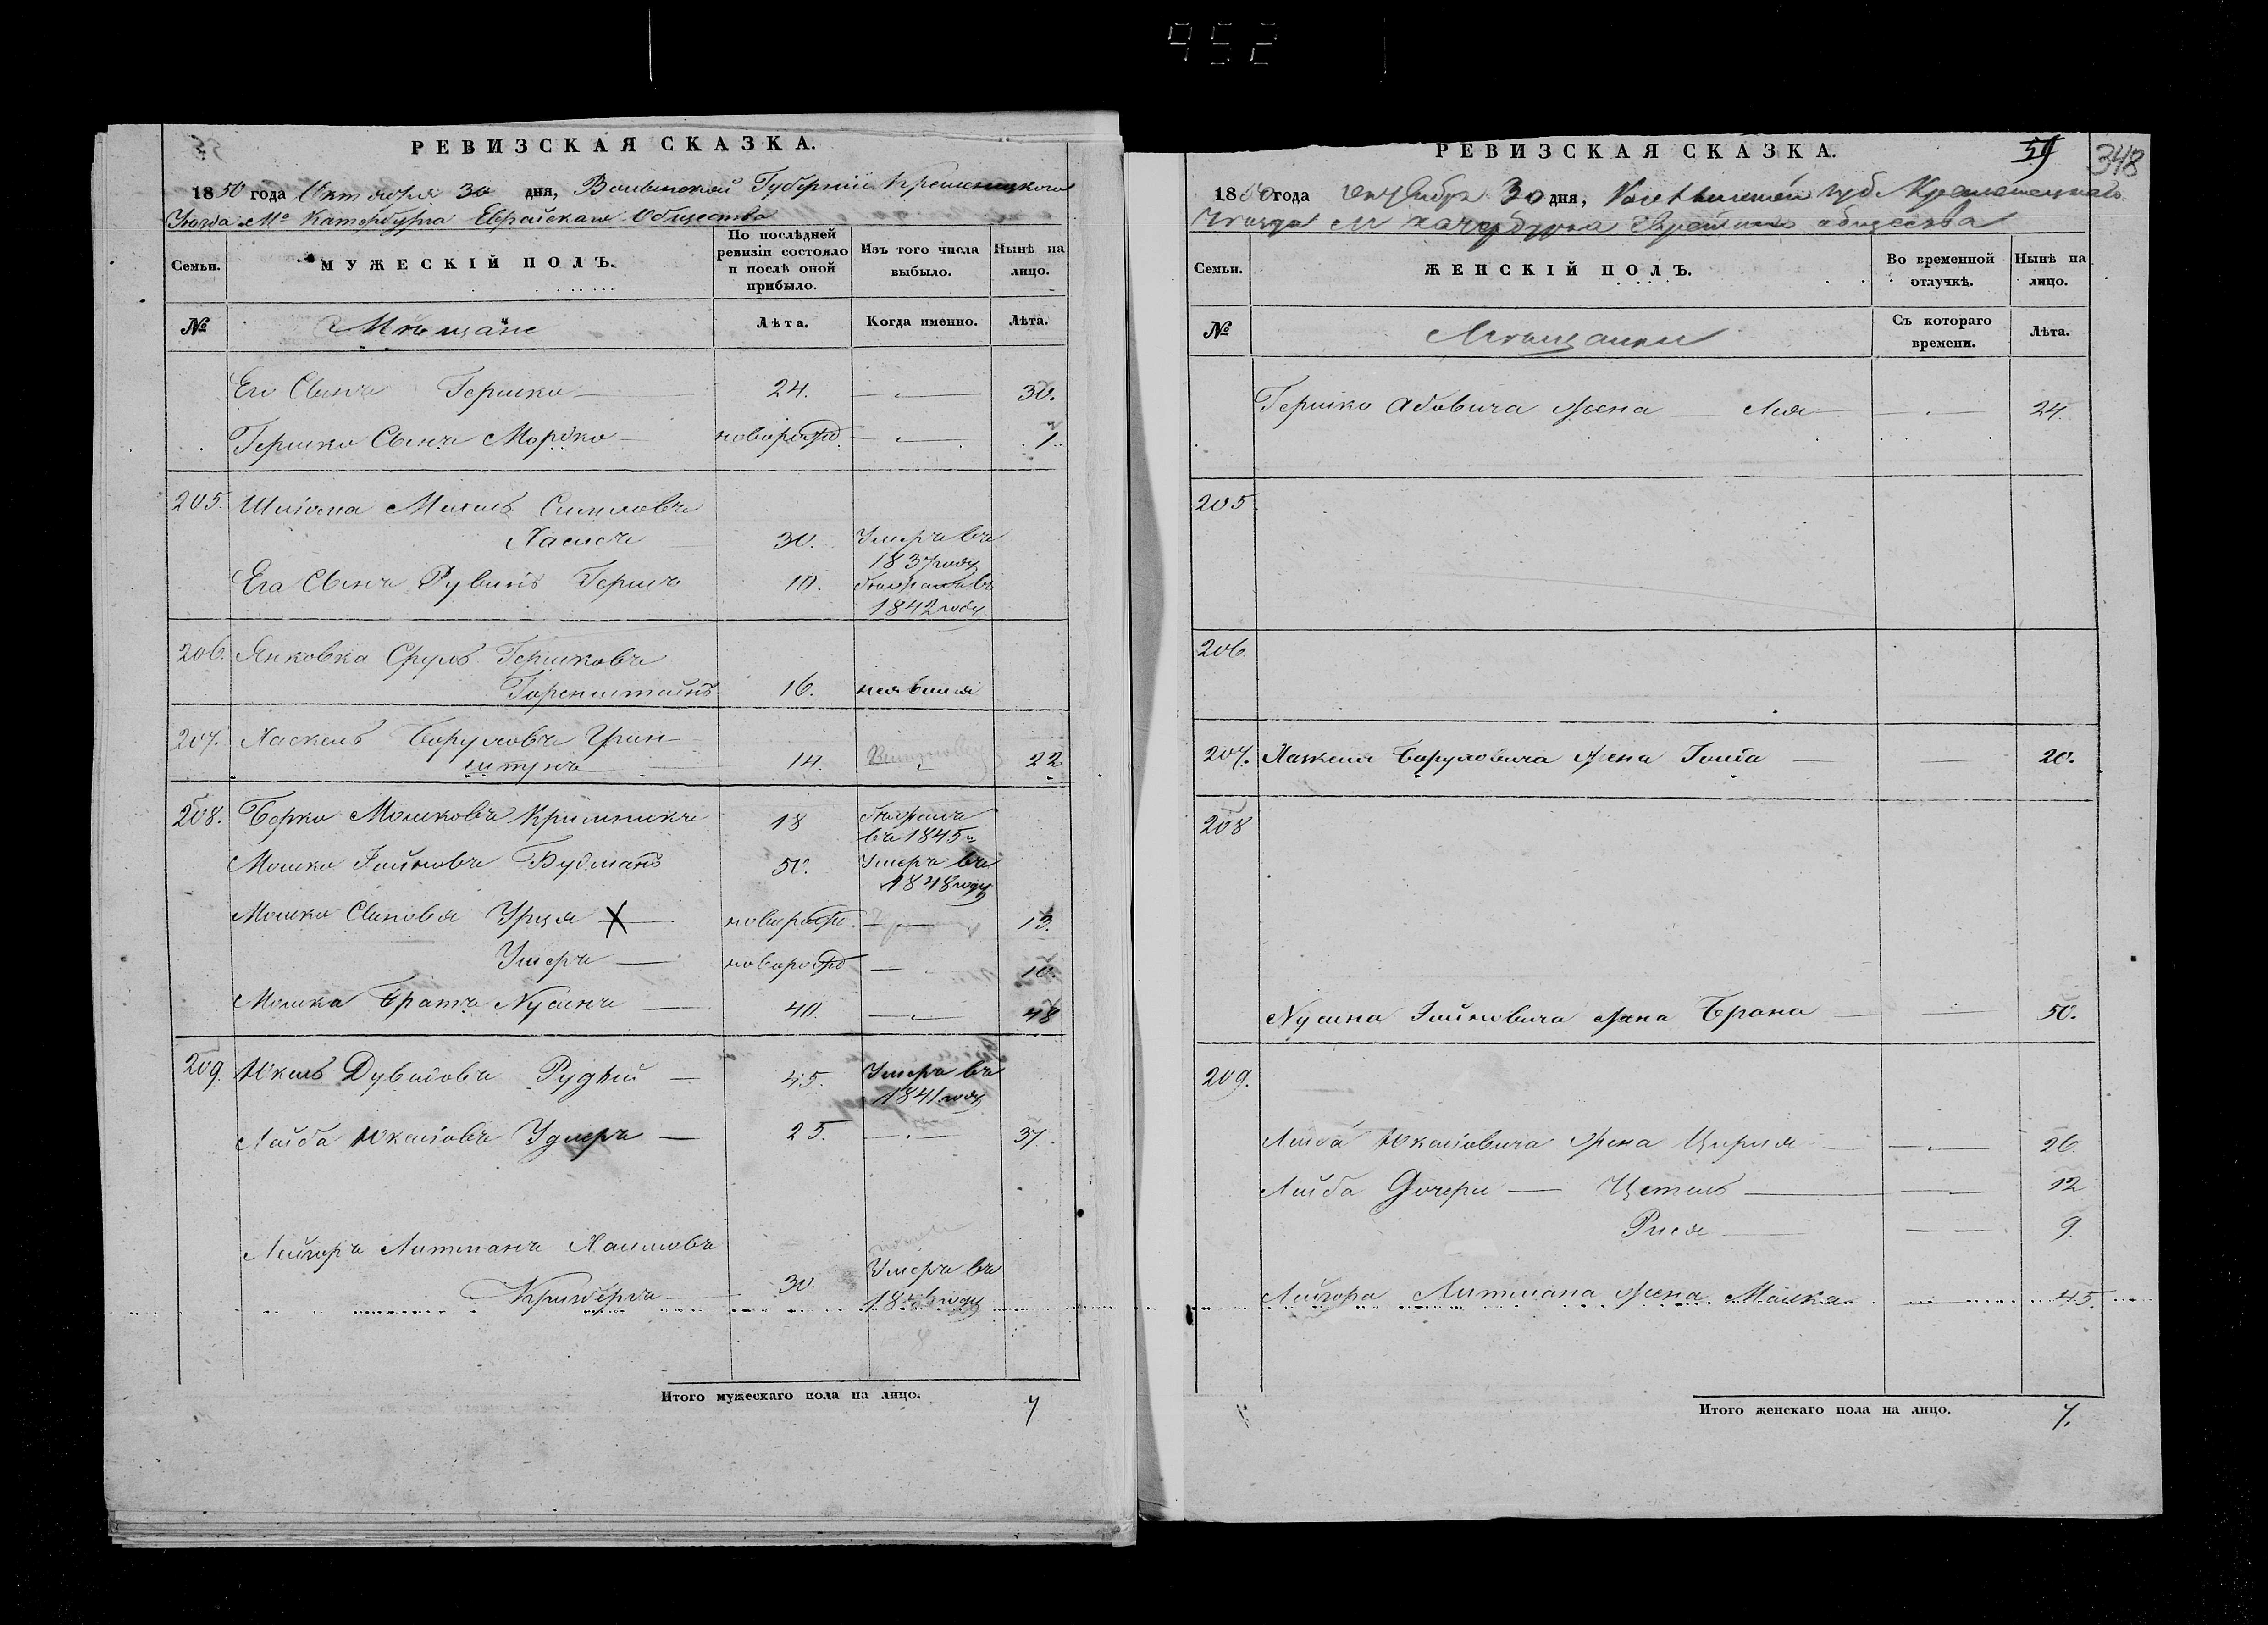 952
РЕВИЗСКАЯ СКАЗКА.
1850 года Октября 30 дня, Волынской Губерніи Кременецкого
Уѣзда Мо Катербурга Еврейскаго Общества
Семьи.
МУЖЕСКІЙ ПОЛЪ.
По послѣдней ревизіи состояло и послѣ оной прибыло.
Изъ того числа выбыло.
Нынѣ на лицо.
№
Мѣщане
Лѣта.
Когда именно.
Лѣта.
Его Сынъ Гершко 24. 30.
Гершко Сынъ Мордко новорожд. 1.
205. Шліома Михель Симіовъ
Хасисъ 30. Умеръ въ
1837 году
Его Сынъ Рувинъ Гершъ 10.
1842 году
206. Янковка Сруль Гершковъ
Горенштейнъ 16. неявился
207. Хаскель Боруховъ Грин-
штунъ 14. 22
208. Берко Мошковъ 18
въ 1845 г
Мошко Іойновъ Будманъ 50. Умеръ въ
1848 году
Мошко Сыновья Урця новорожд. 13.
Умеръ новорожд 10.
Мошка Братъ Нусинъ 40. 48
209. Юкель Дувидовъ Рудый 45. Умеръ въ
1841 году
Лейба Юкеліовъ Удлеръ 25. 37.
Лейзоръ Литманъ Хаимовъ
30. Умеръ въ
Итого мужескаго пола на лицо. 7
РЕВИЗСКАЯ СКАЗКА.
59
348
1850 года Октября 30 дня, Волынской губ Кременецкаго
Уѣзда М Катербурга Еврейскаго общества
Семьи.
ЖЕНСКІЙ ПОЛЪ.
Во временной отлучкѣ.
Нынѣ на лицо.
№
Мѣщанки
Съ котораго времени.
Лѣта.
Гершко Абовича жена Лея 24
205.
206.
207. Хаскеля Боруховича жена Гитя 20.
208
Нусина Іойновича жена Брана 50.
209.
Лейба Юкеліовича жена Цирля 26.
Лейба Дочери Цетель 12
Рися 9.
Лейзора Литмана жена Малка 45.
Итого женскаго пола на лицо. 7.